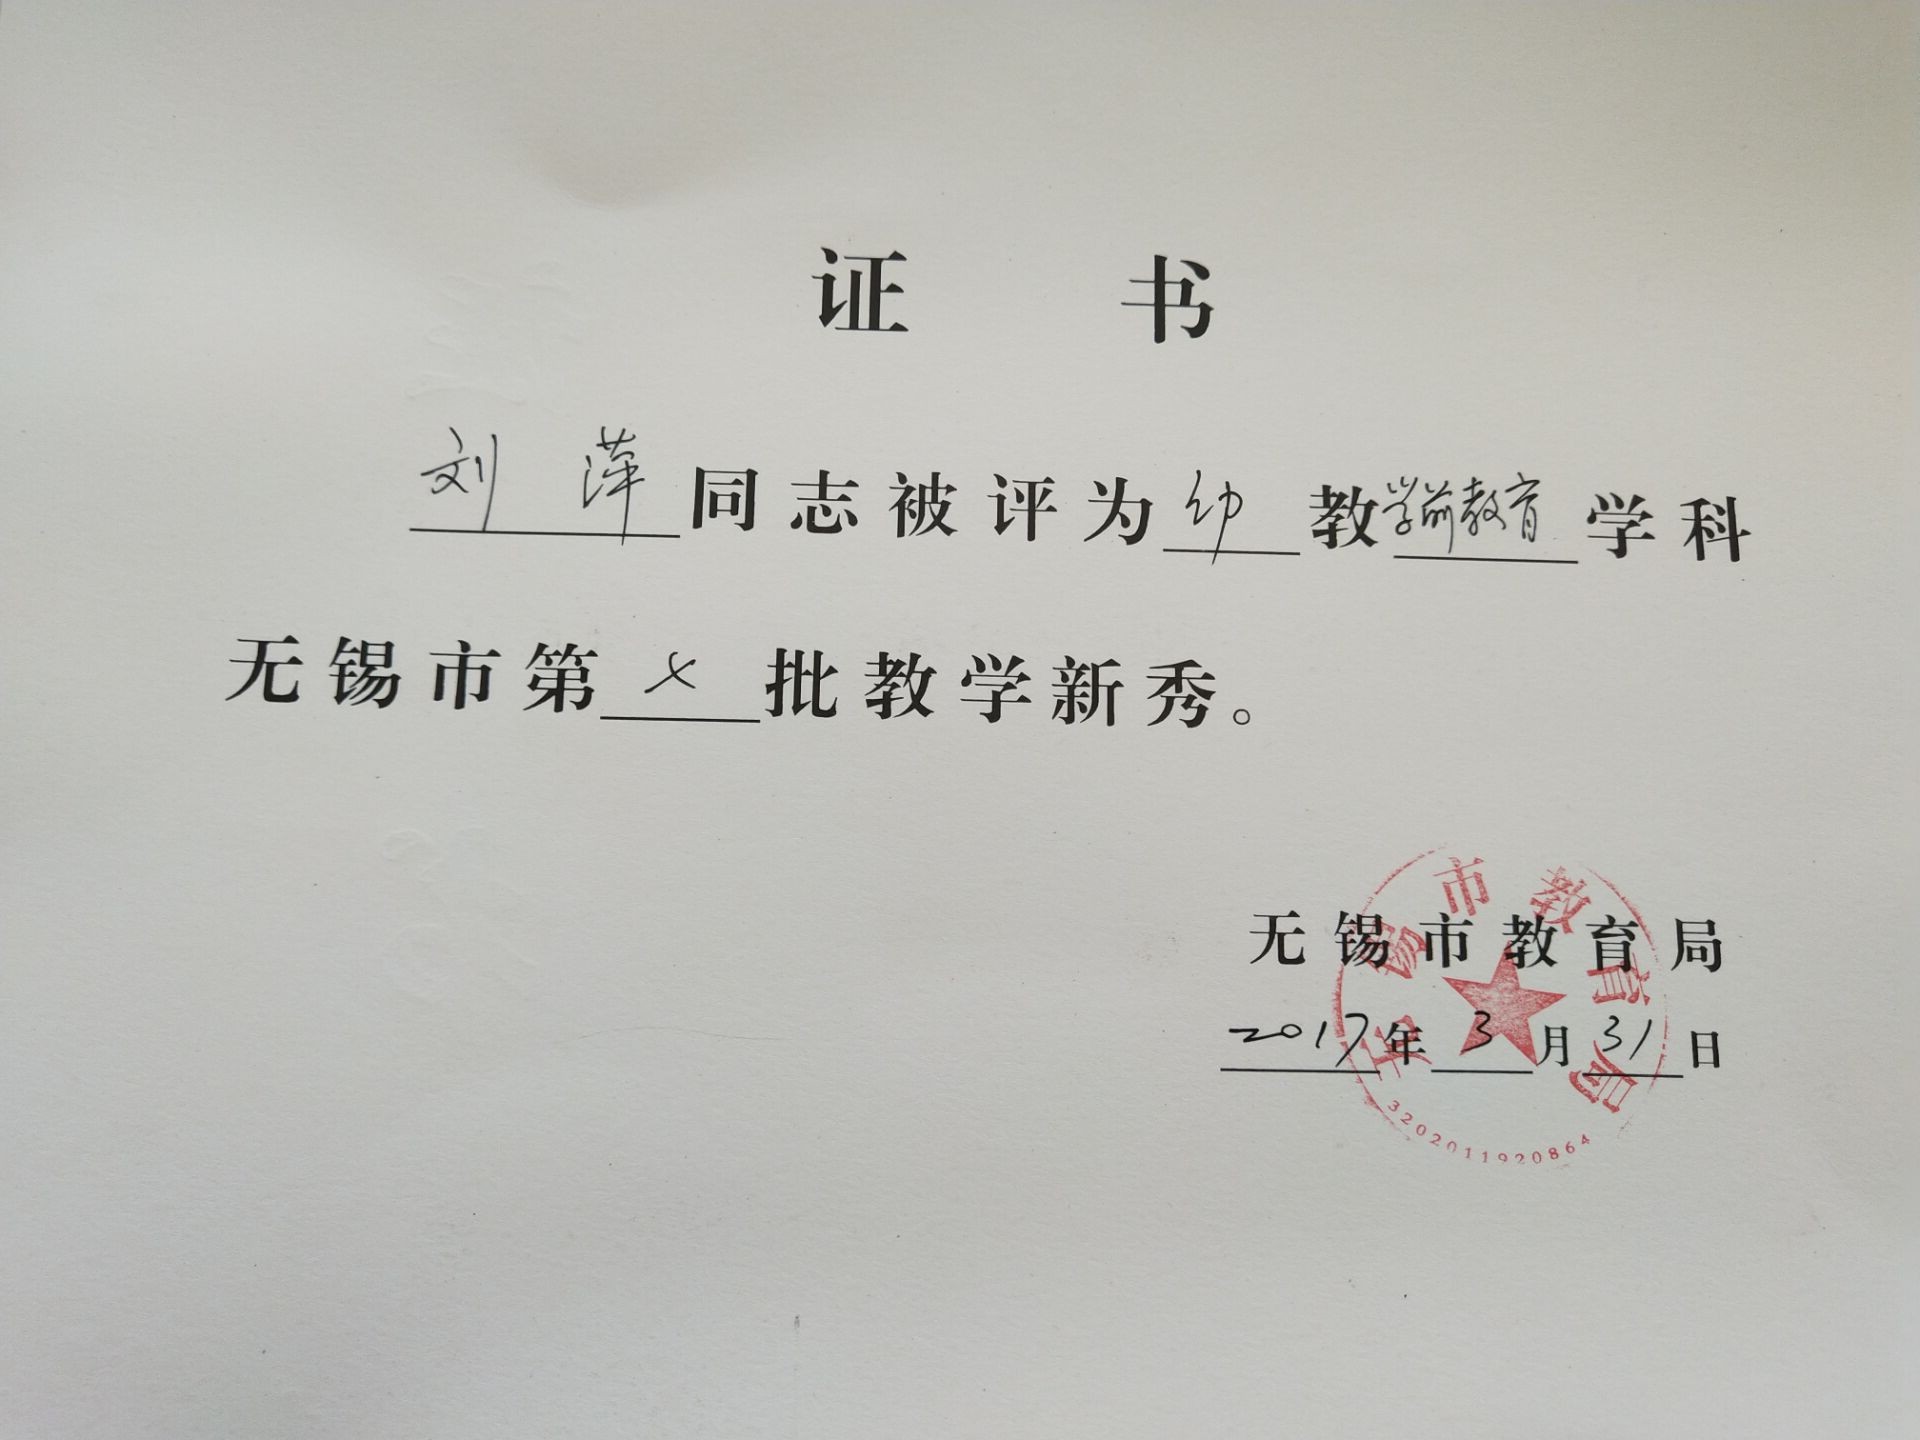 证书
刘萍同志被评为幼教学前教育学科
无锡市第七批教学新秀。
无锡市教育局
2017年3月31日
无锡市教育局
3202011920864